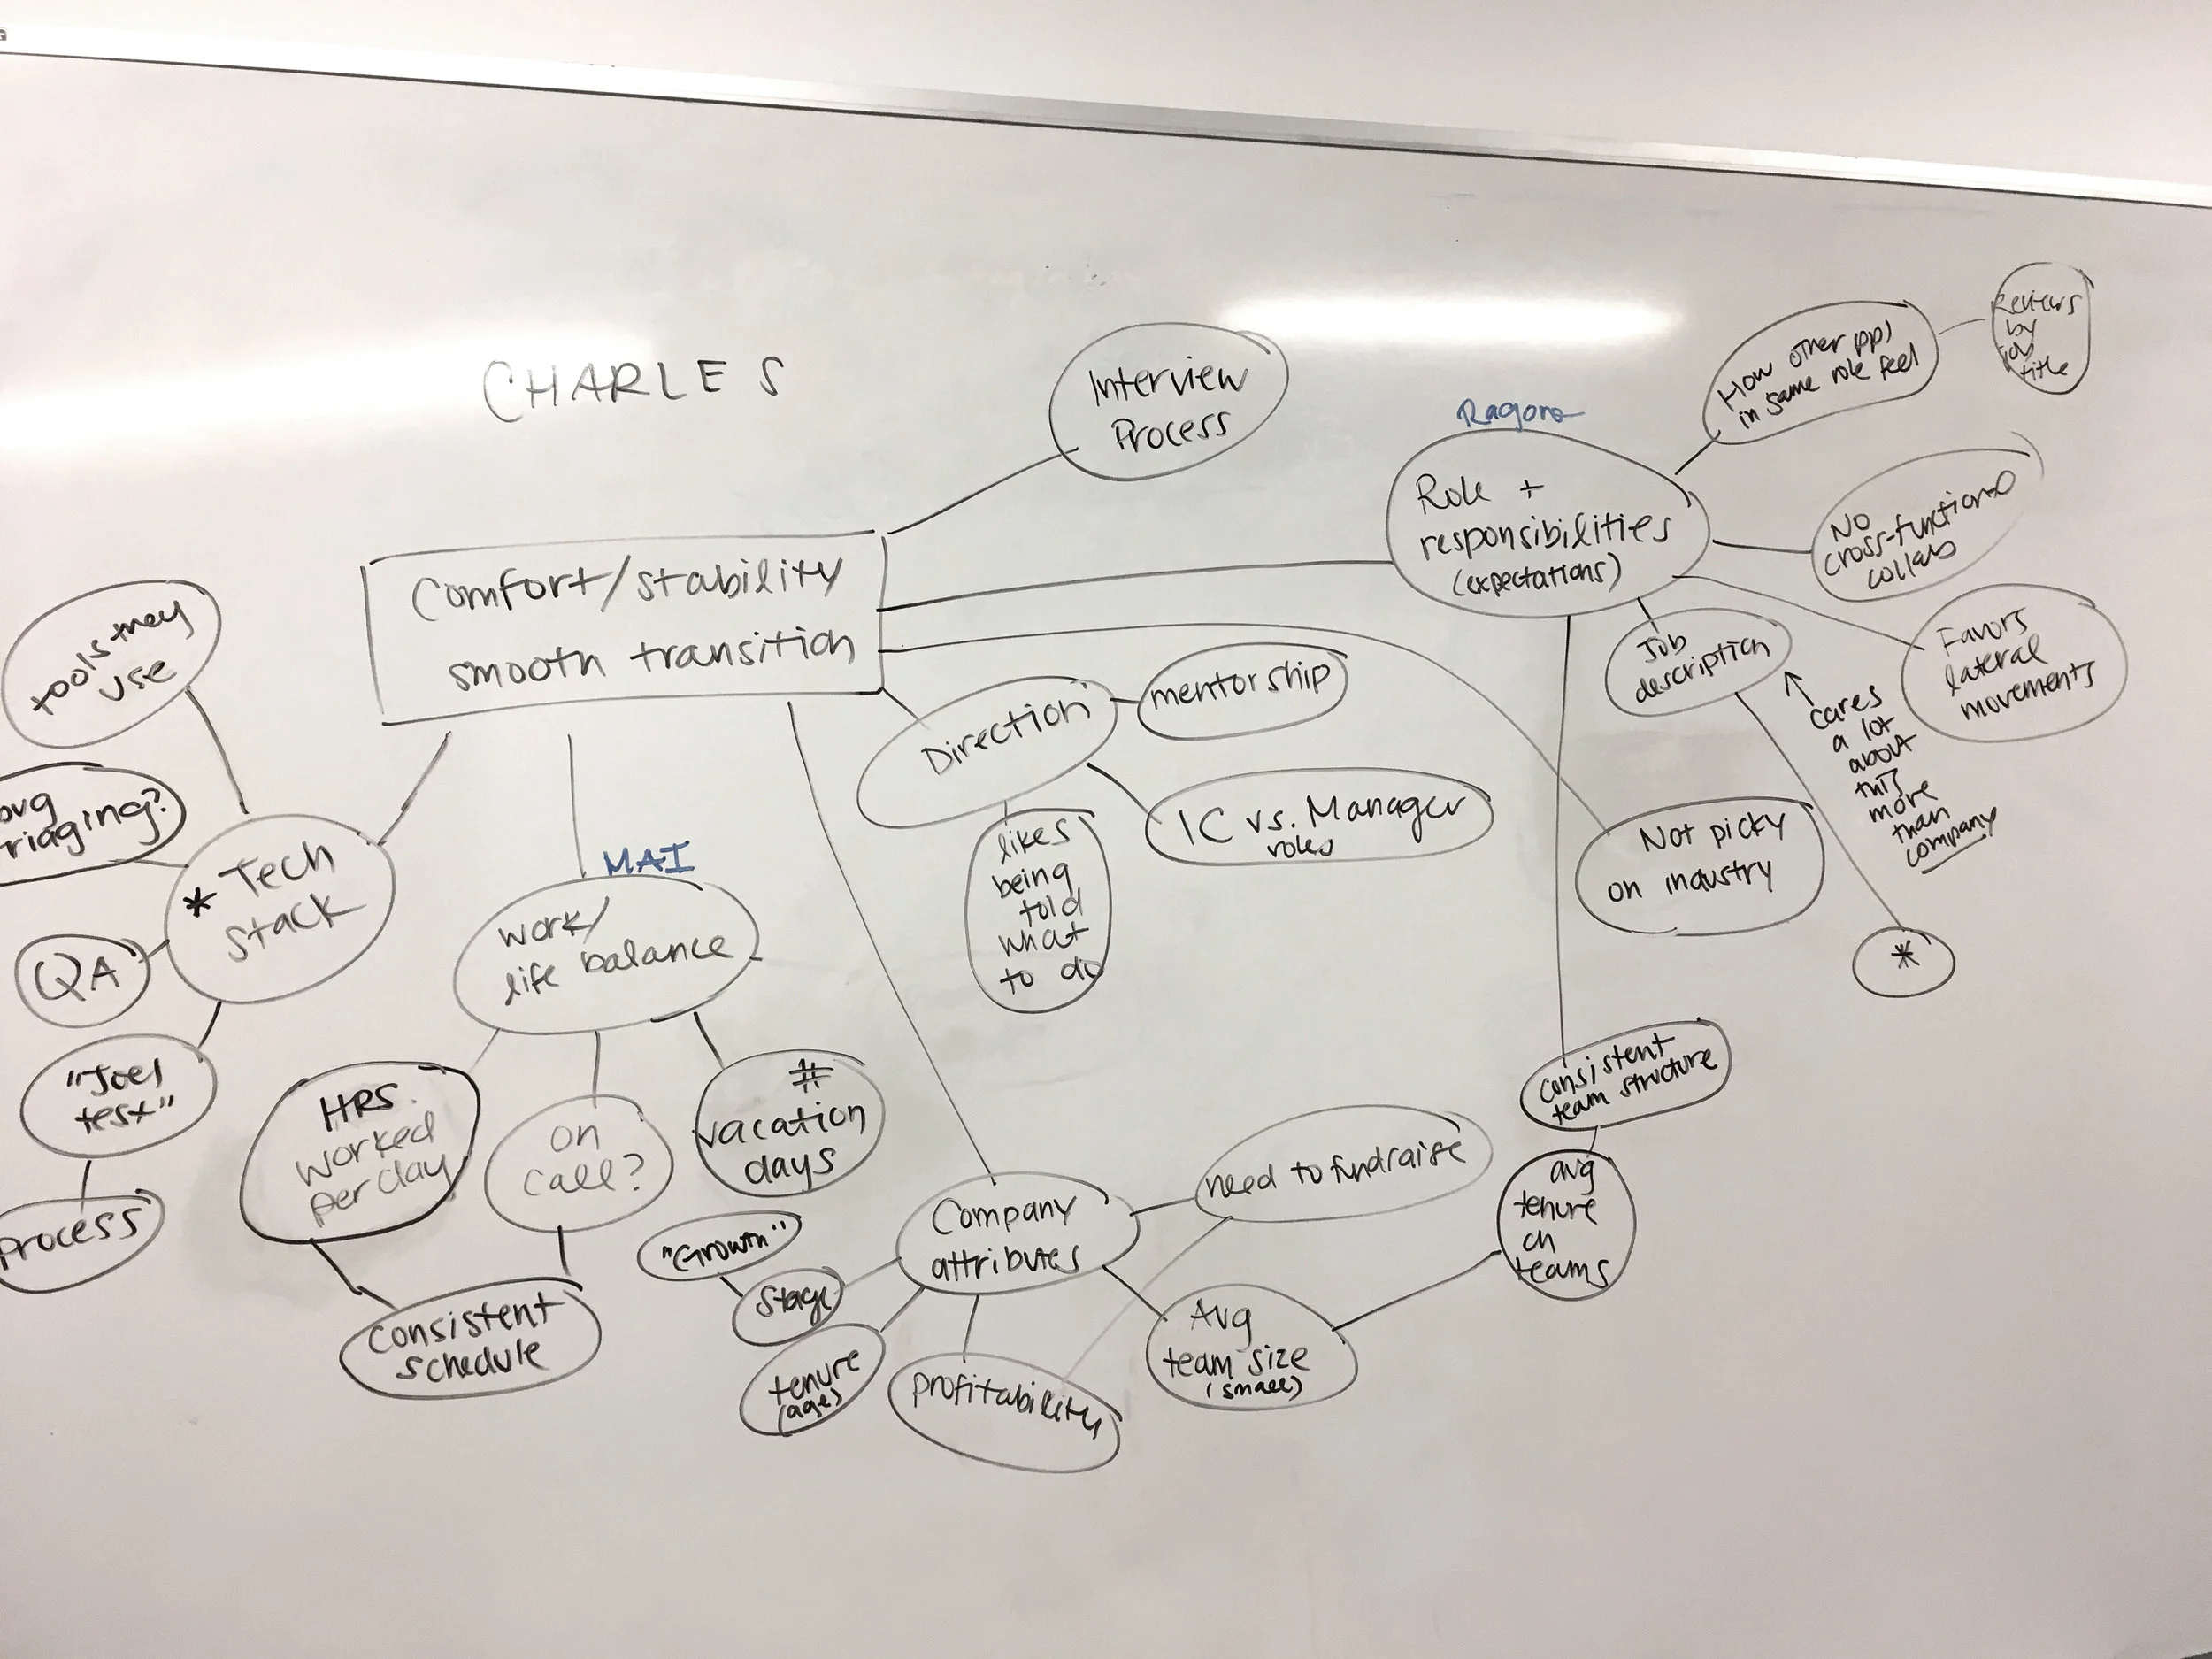 CHARLES
Interview
Process
Comfort/stability
smooth transition
Ragora
Role +
responsibilities
(expectations)
How other ppl
in same role feel
Reviews
by
job
title
NO
cross-functional
collab
Favors
lateral
movements
Job
description
cares
a lot
about
this
more
than
company
*
Not picky
on industry
Direction
mentorship
IC vs. Manager
roles
likes
being
told
what
to do
tools they
use
bug
triaging?
* Tech
stack
QA
"Joel
test"
Process
MAI
work/
life balance
HRS.
worked
per day
on
call?
#
vacation
days
Consistent
schedule
Company
attributes
need to fundraise
"Growth"
Stage
tenure
(age)
Profitability
Avg
team size
(small)
Consistent
team structure
avg
tenure
on
teams